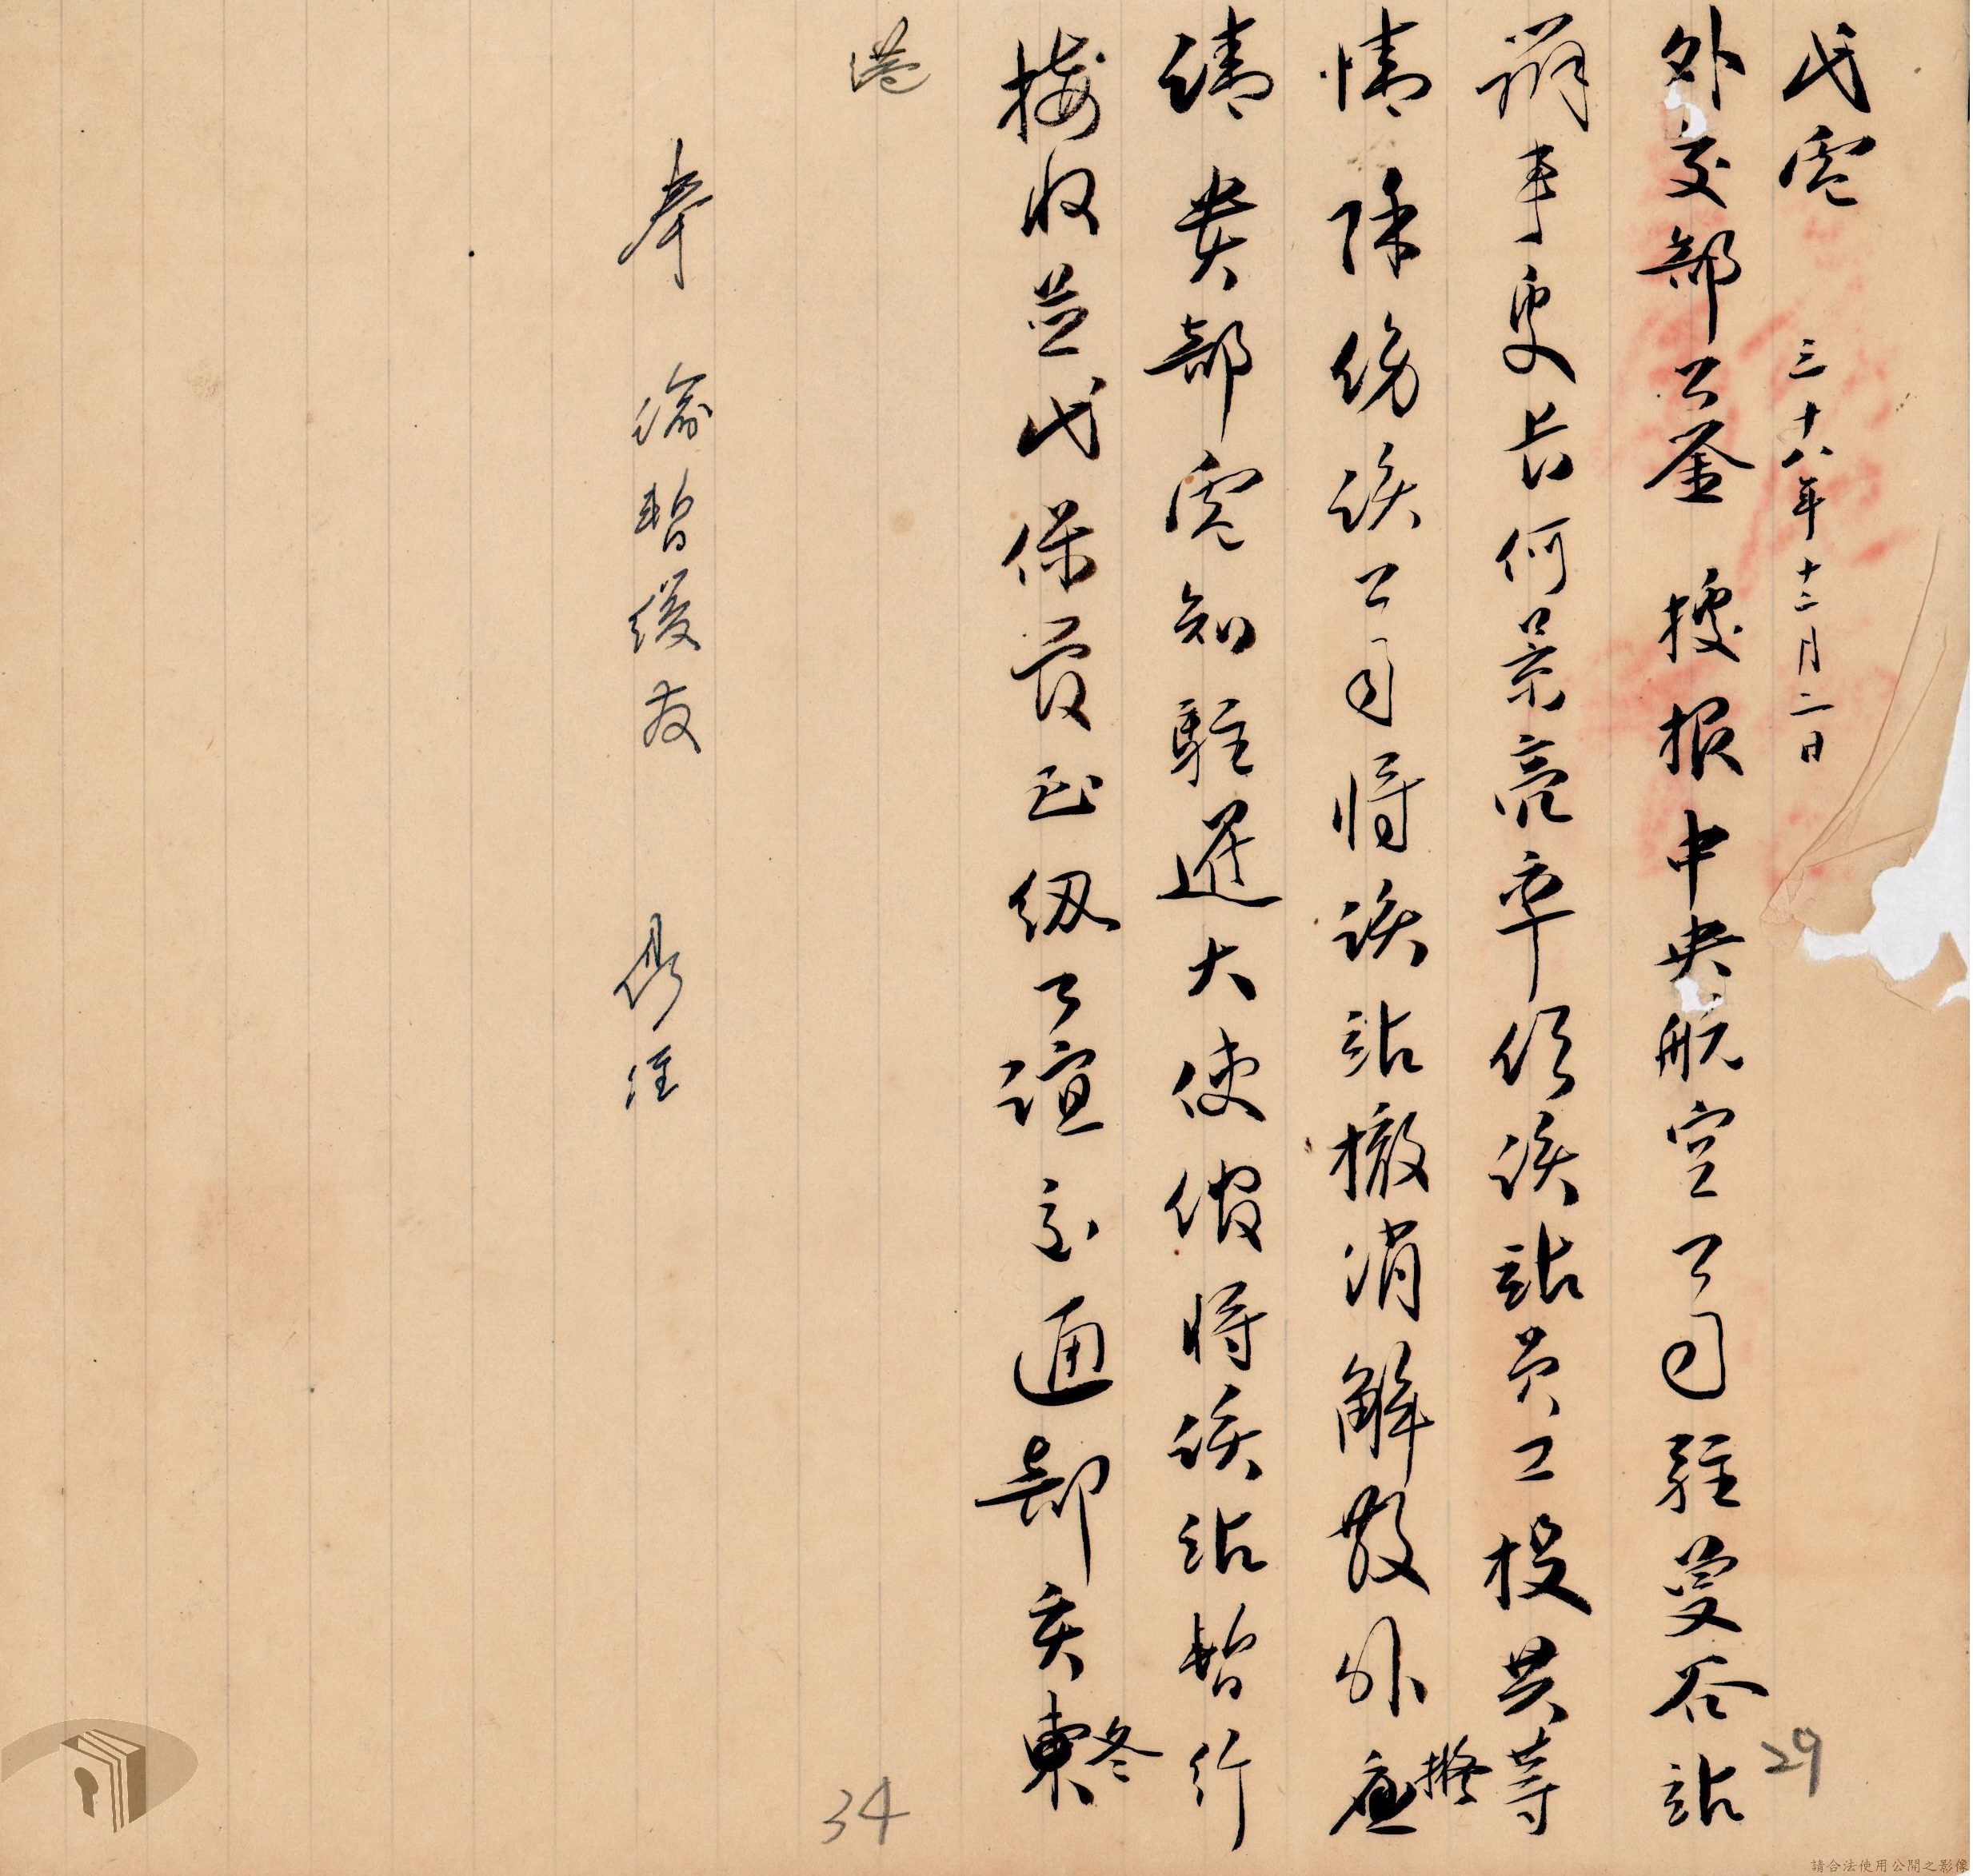 代電
三十八年十二月二日
外交部公鑒 據报中央航空公司駐曼谷站
辦事處長何景亮率領該站员工投共等
情除飭該公司將該站撤消解散外應
擬
請 貴部電知駐暹大使館將該站暫行
接收並代保管至紉公誼交通部亥東
冬
港
奉 諭暫緩发
29
34
請合法使用公開之影像